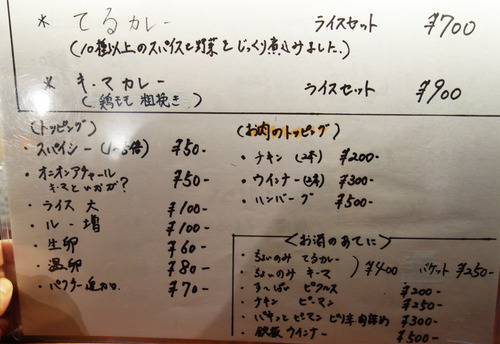 * てるカレー ライスセット ¥700
(10種以上のスパイスと野菜をじっくり煮込みました.)
* キーマカレー ライスセット ¥900
(鶏もも 粗挽き)
(トッピング)
・スパイシー (1~5倍) ¥50-
・オニオンアチャール ¥50-
キーマといかが?
・ライス 大 ¥100-
・ルー 増 ¥100-
・生卵 ¥60-
・温卵 ¥80-
・バター追加 ¥70-
(お肉のトッピング)
・チキン (2本) ¥200-
・ウインナー(3本) ¥300-
・ハンバーグ ¥500-
<お酒のあてに>
・ちょいのみ てるカレー
・ちょいのみ キーマ ) ¥400 バケット ¥250-
・ピクルス ¥200-
・チキン ピーマン ¥250-
・ピーマン ピリ辛肉詰め ¥300-
・鉄板ウインナー ¥500-